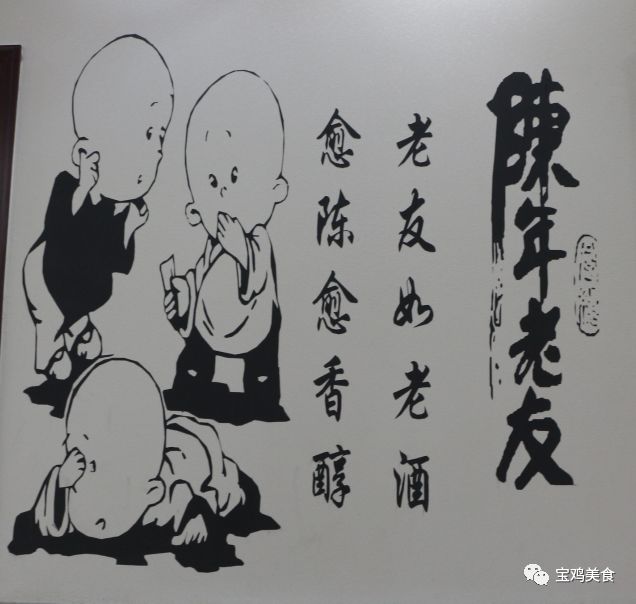 陳年老友
老友如老酒
愈陈愈香醇
宝鸡美食